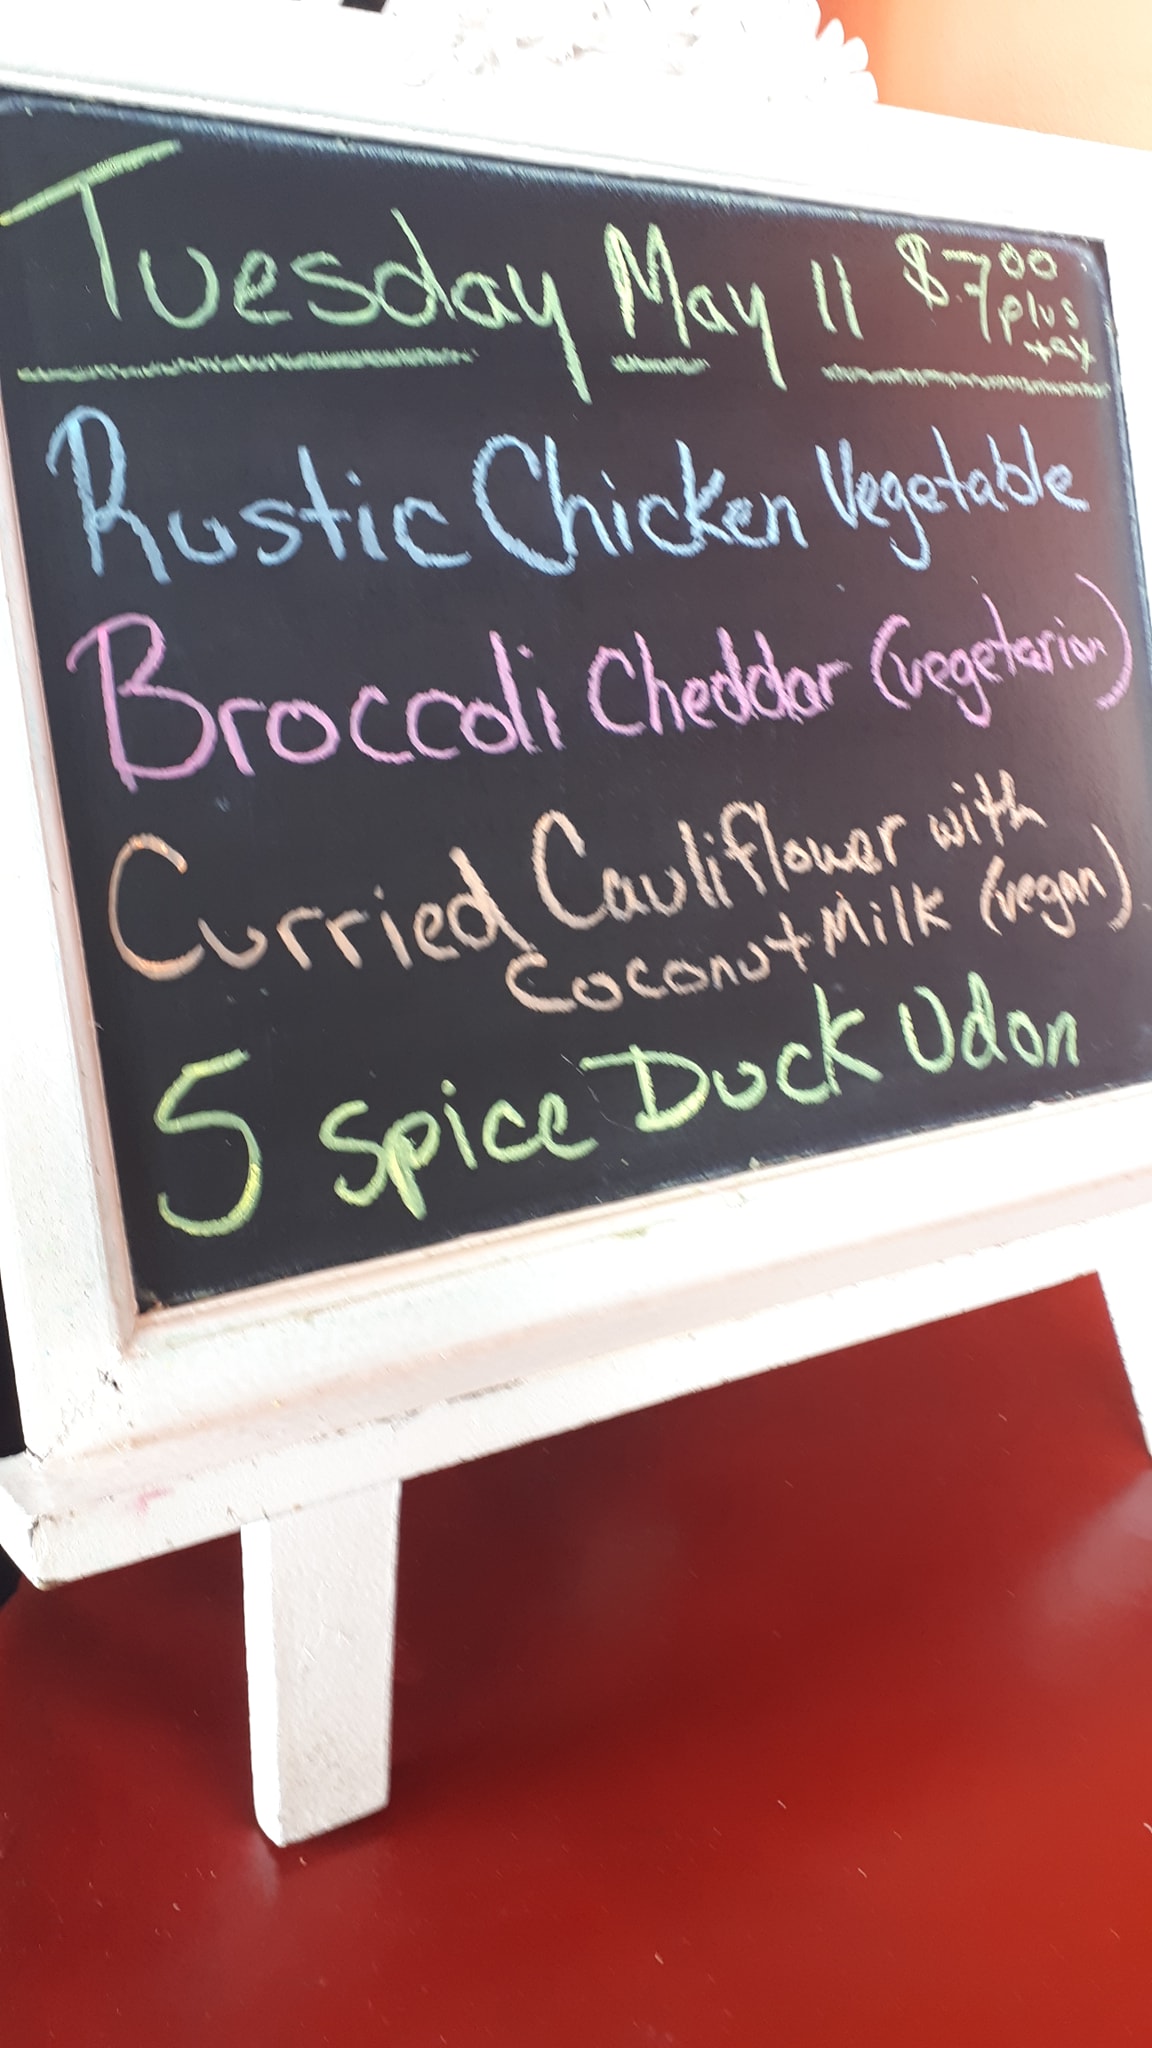 Tuesday May 11 $7.00 plus tax
Rustic Chicken Vegetable
Broccoli Cheddar (vegetarian)
Curried Cauliflower with
Coconut Milk (vegan)
5 Spice Duck Udon